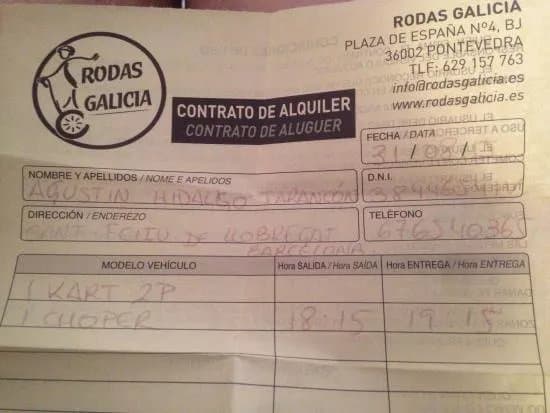 RODAS GALICIA
PLAZA DE ESPAÑA Nº4, BJ
36002 PONTEVEDRA
TLF: 629 157 763
info@rodasgalicia.es
www.rodasgalicia.es
RODAS
GALICIA
CONTRATO DE ALQUILER
CONTRATO DE ALUGUER
FECHA / DATA
NOMBRE Y APELLIDOS / NOME E APELIDOS
AGUSTIN HIDALGO TARANCÓN
D.N.I.
DIRECCIÓN / ENDEREZO
SANT FELIU DE LLOBREGAT
BARCELONA
TELÉFONO
MODELO VEHÍCULO
Hora SALIDA / Hora SAÍDA
Hora ENTREGA / Hora ENTREGA
1 KART 2P
1 CHOPER 18:15 19:15